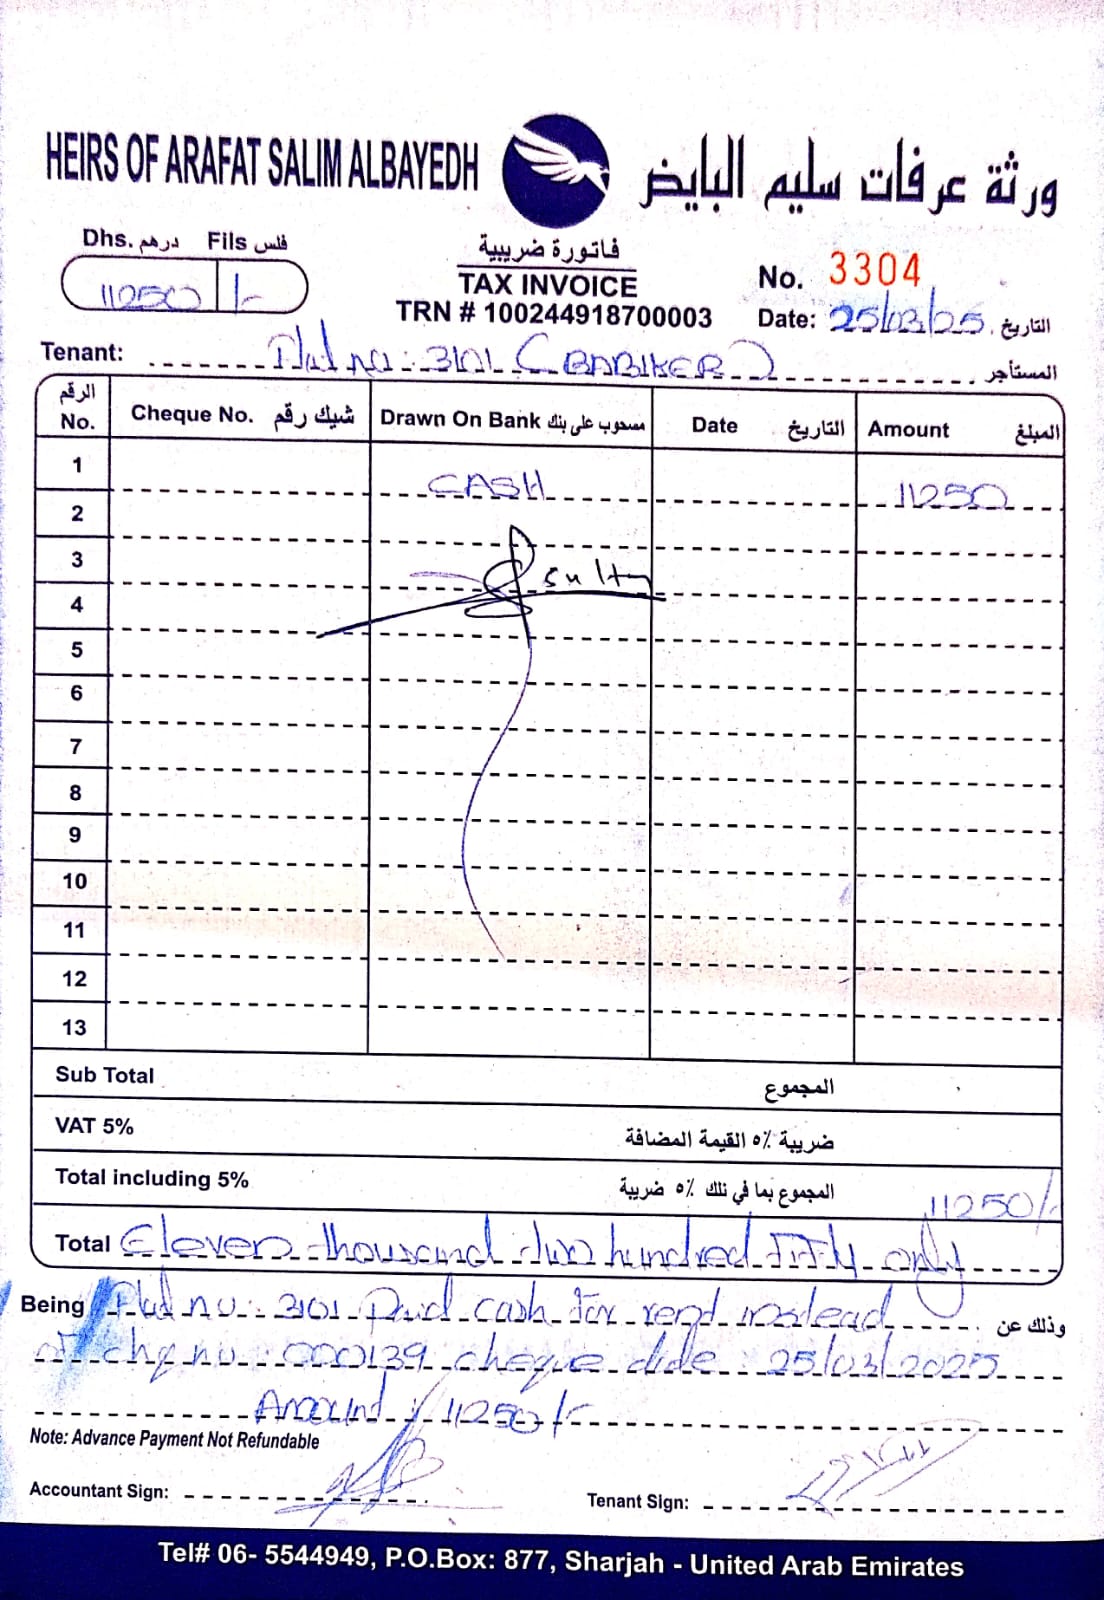 HEIRS OF ARAFAT SALIM ALBAYEDH
ورثة عرفات سليم البايض
Dhs. درهم Fils فلس
11250 /-
فاتورة ضريبية
TAX INVOICE
TRN # 100244918700003
No. 3304
Date: 25/03/25 التاريخ
Tenant: Flat no: 3101 (BABIKER) المستأجر
الرقم No. Cheque No. شيك رقم Drawn On Bank مسحوب على بنك Date التاريخ Amount المبلغ
1 CASH 11250
2
3
4
5
6
7
8
9
10
11
12
13
Sub Total المجموع
VAT 5% ضريبة ٥٪ القيمة المضافة
Total including 5% المجموع بما في ذلك ٥٪ ضريبة 11250/-
Total Eleven thousand two hundred Fifty only
Being Flat no: 3101 Paid cash for rent instead وذلك عن
of chq no: 000139 cheque date: 25/03/2025
Amount: 11250/-
Note: Advance Payment Not Refundable
Accountant Sign:
Tenant Sign:
Tel# 06- 5544949, P.O.Box: 877, Sharjah - United Arab Emirates